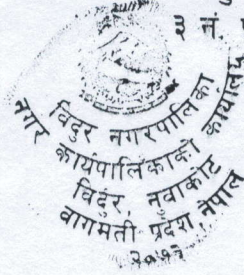 ३ नं.
विदुर नगरपालिका
नगर कार्यपालिकाको कार्यालय
विदुर, नुवाकोट
वागमती प्रदेश नेपाल